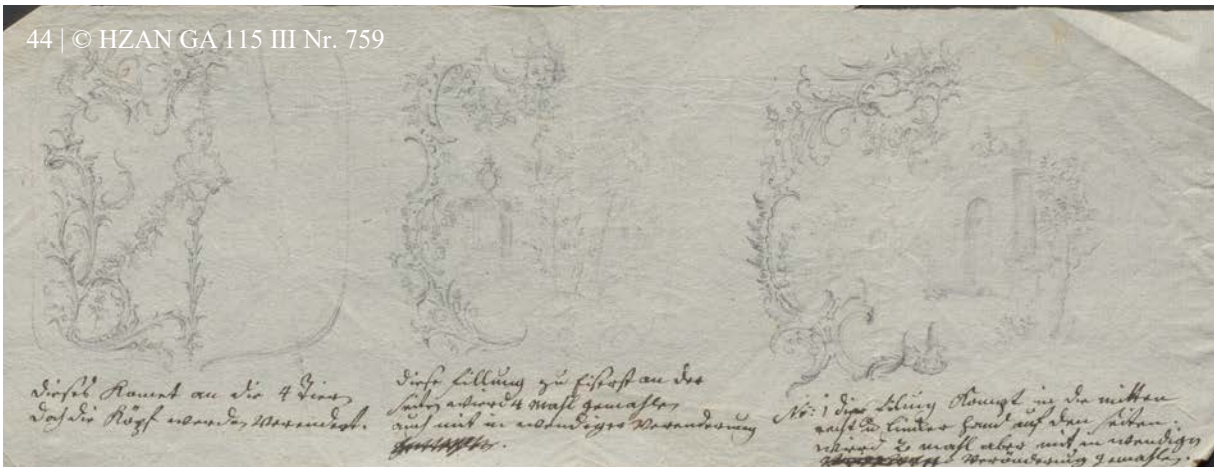 44 | © HZAN GA 115 III Nr. 759
Dieses Komet an die 4 Tier
Doch die Köpf werden Verendert.
Diese fillung zu
Seiten wierd 4 mahl gemahlen
auch mit in wendiger Verenderung
No: 1 Diese filung Kompt in die mitten
recht u lincker hand auf den Seiten.
wierd 2 mahl aber mit in wendiger
Verönderung gemahlen.